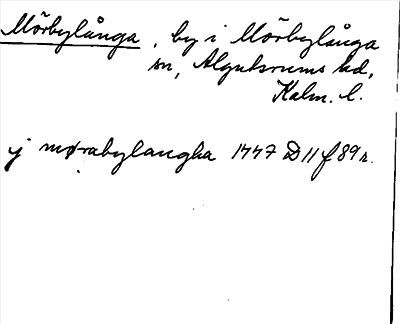 Mörbylånga, by i Mörbylånga
sn, Algutsrums hd,
Kalm. l.
j mørabylangha 1447 D 11 f 89 r.